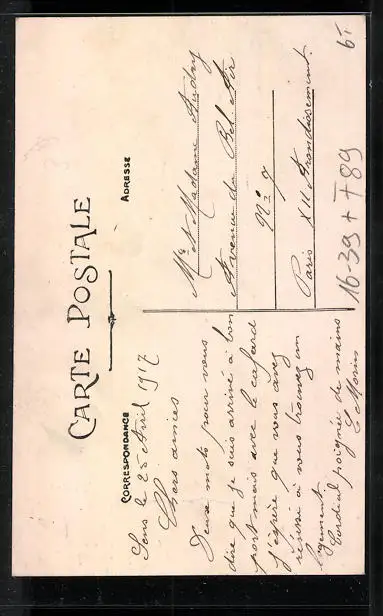 CARTE POSTALE
CORRESPONDANCE
ADRESSE
Sens le 25 Avril 1917
Chers amies
Deux mots pour vous
dire que je suis arrivé a bon
port mais avec le cafard
j'espère que vous avez
réussi a vous trouver un
logement
Cordial poignée de mains
E Morin
Mr & Madame Audry
Avenue du Bel Air
No 9
Paris XII Arrondissement
16-39 + T89